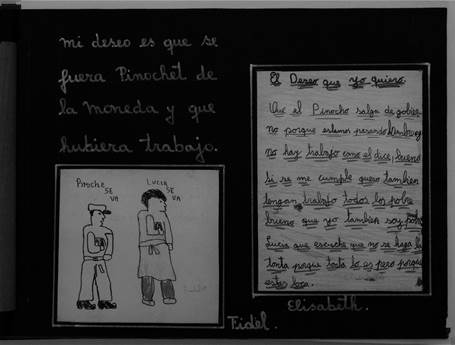 mi deseo es que se
fuera Pinochet de
la moneda y que
hubiera trabajo.
Pinoche SE
VA
LUCIA SE
VA
Fidel.
El Deseo que yo quiero
Que el Pinocho salga de gobier
no porque estamos pasando hambre y
no hay trabajo como el dice, bueno
si se me cumple quero tambien
tengan trabajo todos los pobre
bueno que yo tambien soy pobre
Lucia que escuche que no se haga la
tonta porque tonta lo es pero porque
estas loca.
Elisabeth.